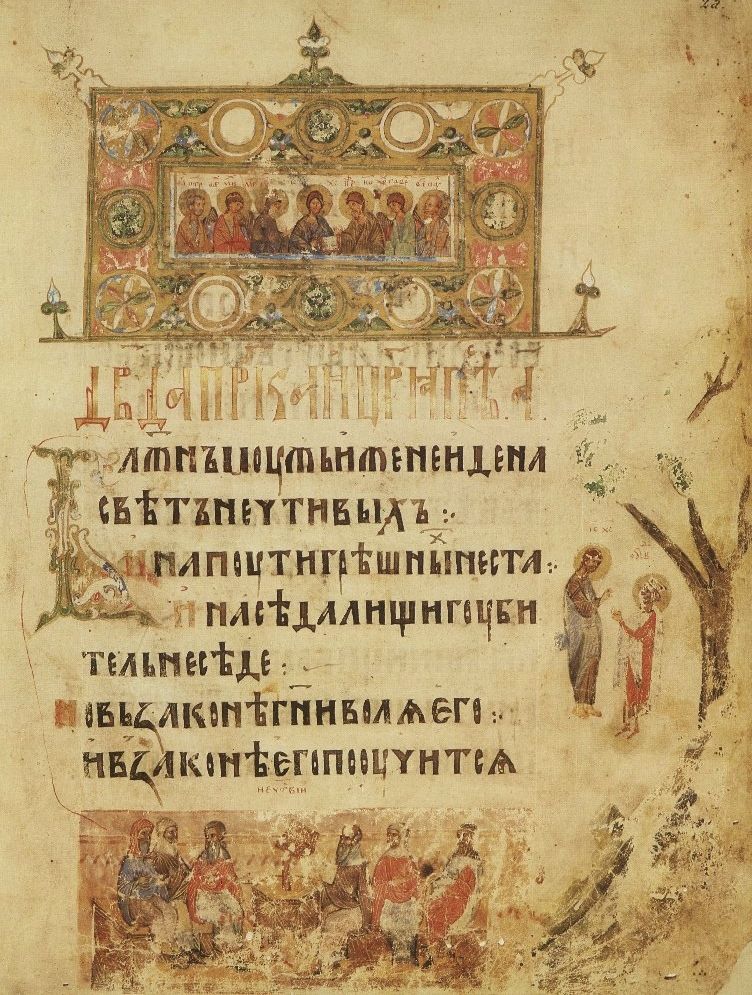 ДВДАПРРКАИЦРѦПѢ·А·
БЛЖНЪМОУЖЬИЖЕНЕИДЕНА
СВѢТЪНЕЧТИВЫХЪ:·
ИНАПОУТИГРѢШНЫХНЕСТА:·
ИНАСѢДАЛИЩИГОУБИ
ТЕЛЬНЕСѢДЕ:
НОВЬЗАКОНѢГНИВОЛѦЕГО:·
ИВЗАКОНѢЕГОПООУЧИТСѦ
ІС ХС